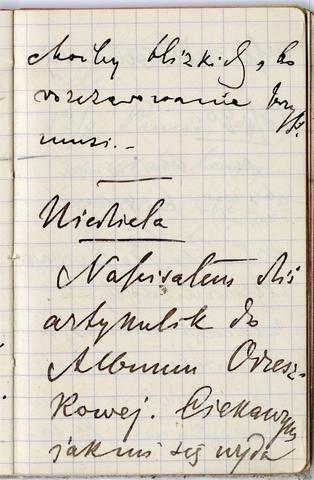 choćby blizkich, bo
rozczarowanie być
musi. –
Niedziela
Napisałem dziś
artykulik do
Albumu Orzesz-
kowej. Ciekawym
jak mi się wyda